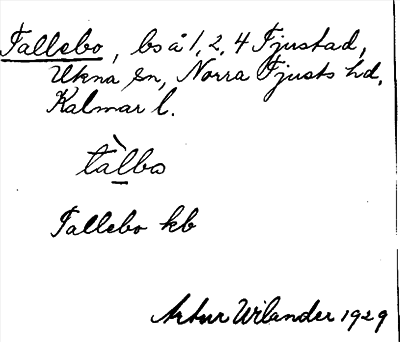 Tallebo, bs å 1, 2, 4 Tjustad,
Ukna sn, Norra Tjusts hd,
Kalmar l.
tàlbo
Tallebo kb
Artur Wilander 1929